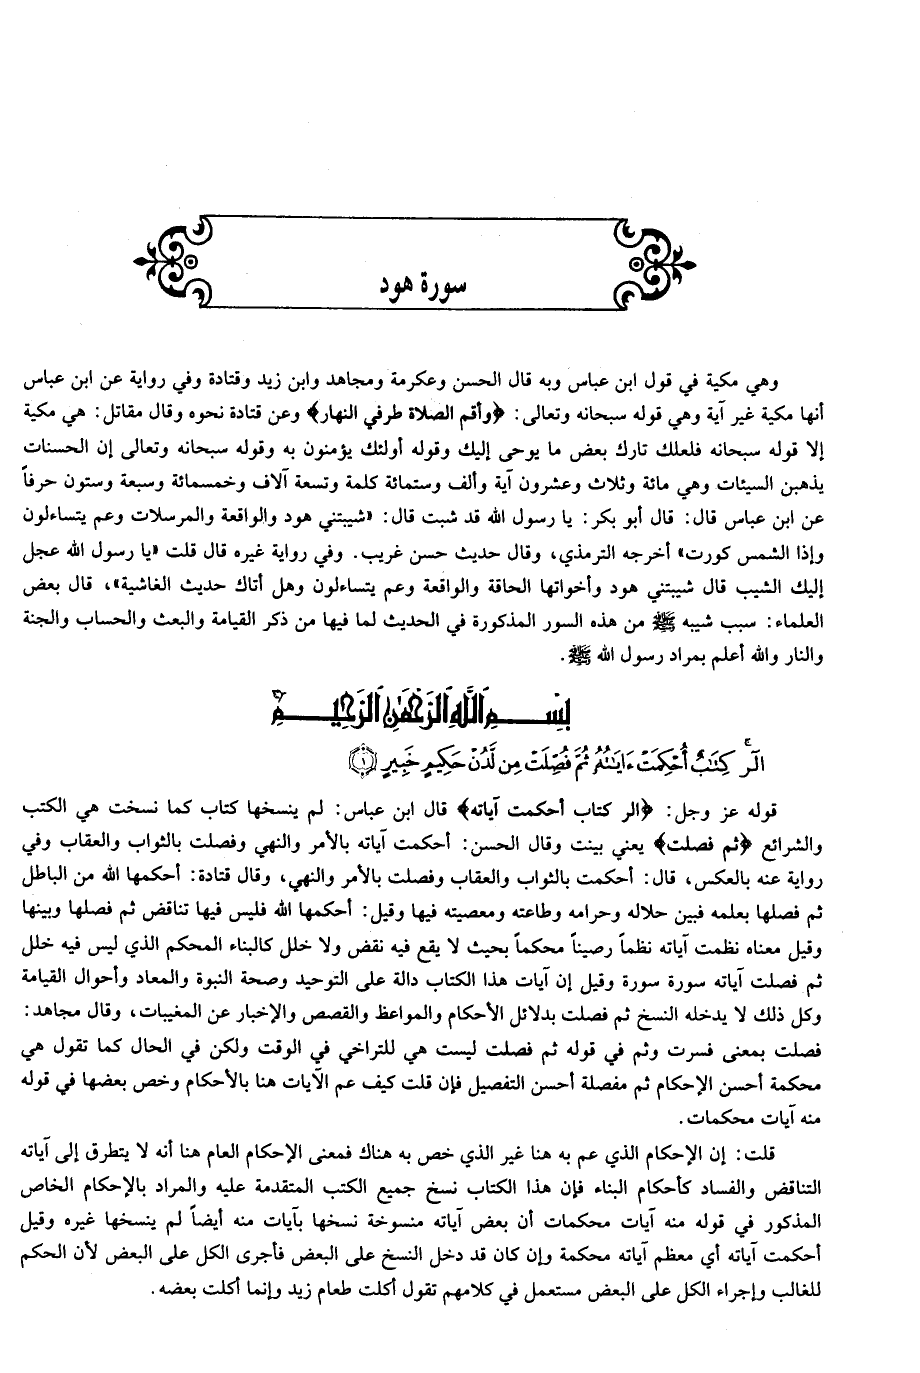 سورة هود
وهي مكية في قول ابن عباس وبه قال الحسن وعكرمة ومجاهد وابن زيد وقتادة وفي رواية عن ابن عباس
أنها مكية غير آية وهي قوله سبحانه وتعالى: ﴿وأقم الصلاة طرفي النهار﴾ وعن قتادة نحوه وقال مقاتل: هي مكية
إلا قوله سبحانه فلعلك تارك بعض ما يوحى إليك وقوله أولئك يؤمنون به وقوله سبحانه وتعالى إن الحسنات
يذهبن السيئات وهي مائة وثلاث وعشرون آية وألف وستمائة كلمة وتسعة آلاف وخمسمائة وسبعة وستون حرفاً
عن ابن عباس قال: قال أبو بكر: يا رسول الله قد شبت قال: «شيبتني هود والواقعة والمرسلات وعم يتساءلون
وإذا الشمس كورت» أخرجه الترمذي، وقال حديث حسن غريب. وفي رواية غيره قال قلت «يا رسول الله عجل
إليك الشيب قال شيبتني هود وأخواتها الحاقة والواقعة وعم يتساءلون وهل أتاك حديث الغاشية»، قال بعض
العلماء: سبب شيبه ﷺ من هذه السور المذكورة في الحديث لما فيها من ذكر القيامة والبعث والحساب والجنة
والنار والله أعلم بمراد رسول الله ﷺ.
بِسْمِ اللَّهِ الرَّحْمَٰنِ الرَّحِيمِ
الٓرۚ كِتَٰبٌ أُحْكِمَتْ ءَايَٰتُهُۥ ثُمَّ فُصِّلَتْ مِن لَّدُنْ حَكِيمٍ خَبِيرٍ ﴿١﴾
قوله عز وجل: ﴿الر كتاب أحكمت آياته﴾ قال ابن عباس: لم ينسخها كتاب كما نسخت هي الكتب
والشرائع ﴿ثم فصلت﴾ يعني بينت وقال الحسن: أحكمت آياته بالأمر والنهي وفصلت بالثواب والعقاب وفي
رواية عنه بالعكس، قال: أحكمت بالثواب والعقاب وفصلت بالأمر والنهي، وقال قتادة: أحكمها الله من الباطل
ثم فصلها بعلمه فبين حلاله وحرامه وطاعته ومعصيته فيها وقيل: أحكمها الله فليس فيها تناقض ثم فصلها وبينها
وقيل معناه نظمت آياته نظماً رصيناً محكماً بحيث لا يقع فيه نقض ولا خلل كالبناء المحكم الذي ليس فيه خلل
ثم فصلت آياته سورة سورة وقيل إن آيات هذا الكتاب دالة على التوحيد وصحة النبوة والمعاد وأحوال القيامة
وكل ذلك لا يدخله النسخ ثم فصلت بدلائل الأحكام والمواعظ والقصص والإخبار عن المغيبات، وقال مجاهد:
فصلت بمعنى فسرت وثم في قوله ثم فصلت ليست هي للتراخي في الوقت ولكن في الحال كما تقول هي
محكمة أحسن الإحكام ثم مفصلة أحسن التفصيل فإن قلت كيف عم الآيات هنا بالأحكام وخص بعضها في قوله
منه آيات محكمات.
قلت: إن الإحكام الذي عم به هنا غير الذي خص به هناك فمعنى الإحكام العام هنا أنه لا يتطرق إلى آياته
التناقض والفساد كأحكام البناء فإن هذا الكتاب نسخ جميع الكتب المتقدمة عليه والمراد بالإحكام الخاص
المذكور في قوله منه آيات محكمات أن بعض آياته منسوخة نسخها بآيات منه أيضاً لم ينسخها غيره وقيل
أحكمت آياته أي معظم آياته محكمة وإن كان قد دخل النسخ على البعض فأجرى الكل على البعض لأن الحكم
للغالب وإجراء الكل على البعض مستعمل في كلامهم تقول أكلت طعام زيد وإنما أكلت بعضه.